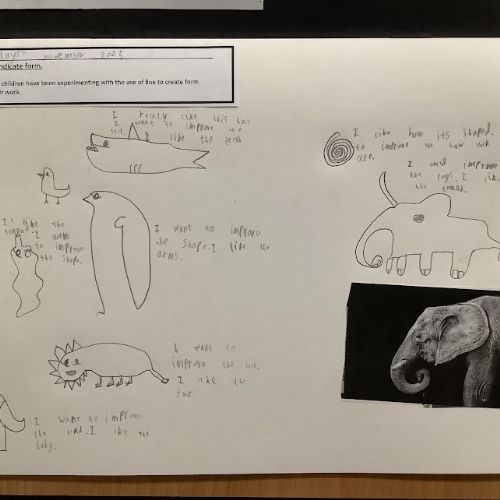 november 2025
ndicate form.
children have been experimenting with the use of line to create form
ir work.
I really like this but
I want to improve the
I like the teeth
I like how its shaped.
to improve on how thick
I like the
I want
to improve
the shape.
I want to improve
the shape. I like the
arms.
I want to
improve the
I like the
fur.
I want to improve
the I like the
body.
I improve
the legs. I like
the